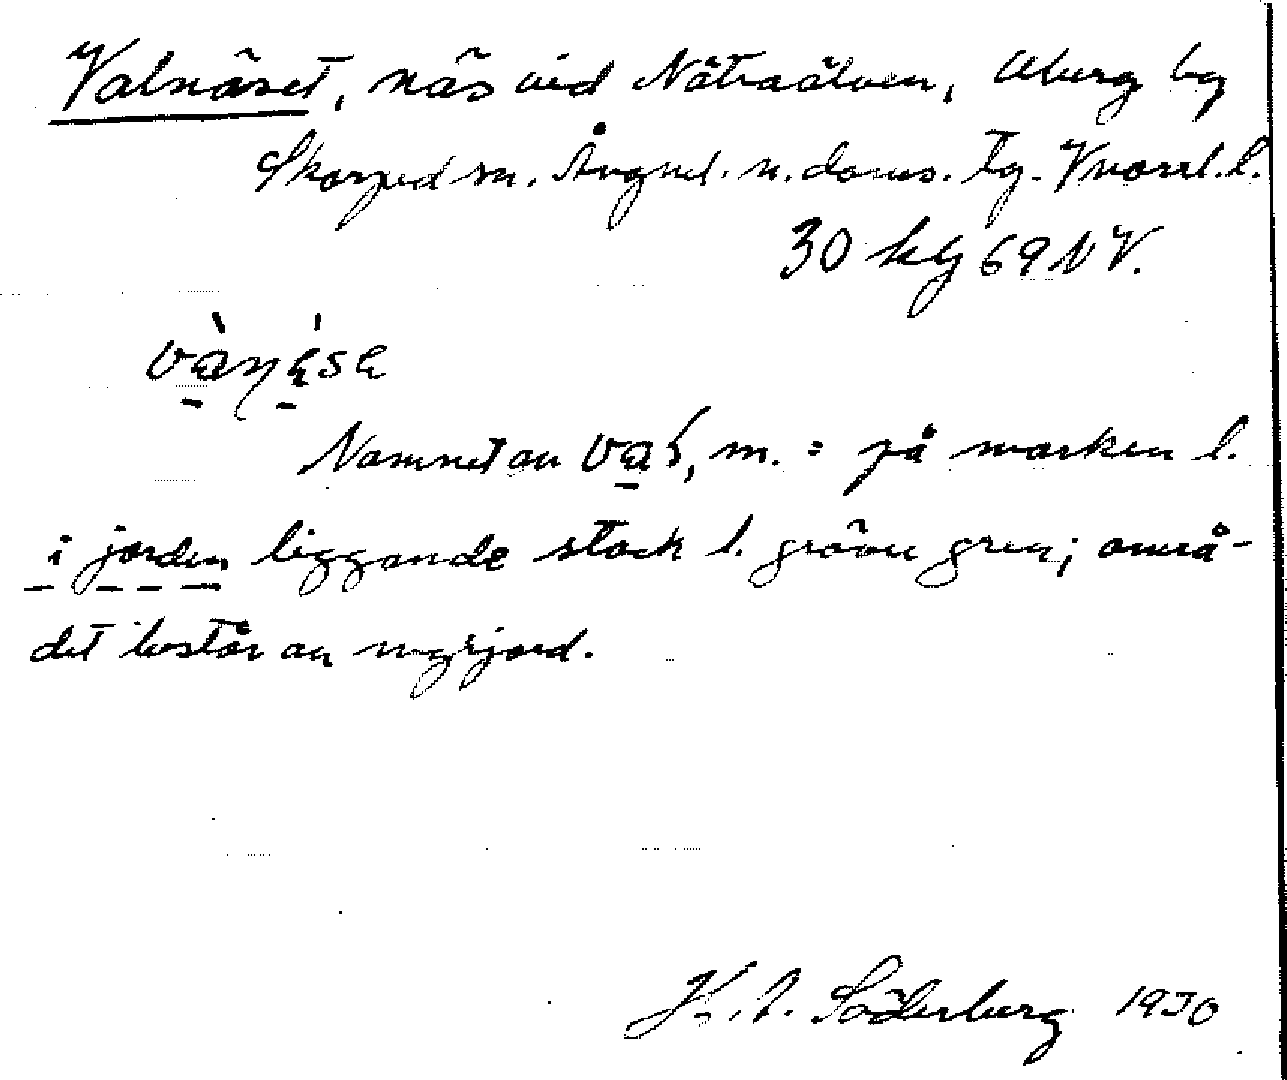 Valnäset, näs vid Nätraälven, Uberg by
Skorped sn. Ångml. n. doms. tg. Vnorrl. l.
30 kg 69 NV.
Namnet av m. = på marken l.
i jorden liggande stock l. grövre gren; områ-
det består av myrjord.
K. A. Söderberg 1930